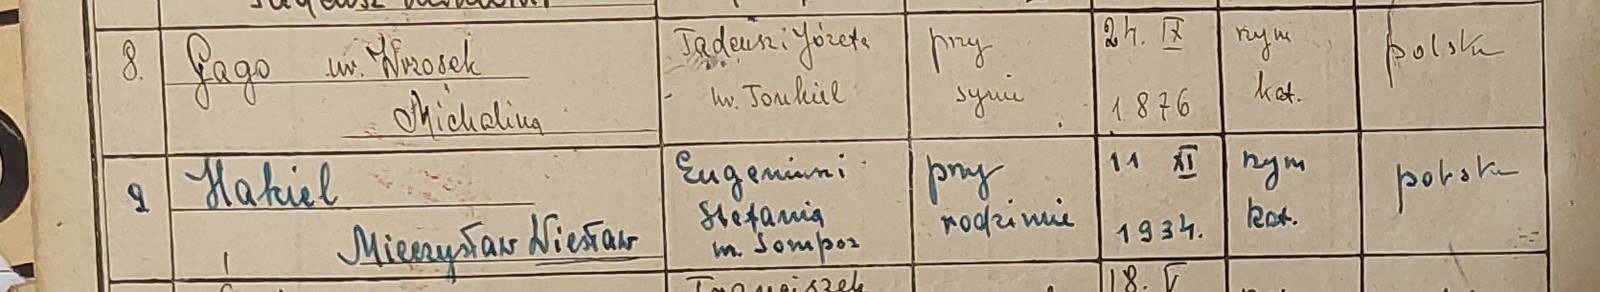 8. Gago ur. Wrosek
Michalina
Tadeusz i Józefa
ur. Tomkiel
przy
synie
24. IX
1876
rzym
kat.
polska
9 Hakiel
Mieczysław Wiesław
Eugeniusz i
Stefania
ur. Sompor
przy
rodzinie
11 XI
1934.
rzym
kat.
polska
Franciszek
18. V